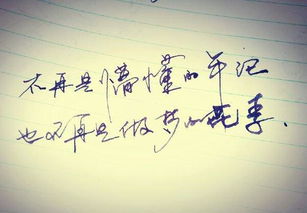 不再是懵懂的年记
也不再是做梦的花季.